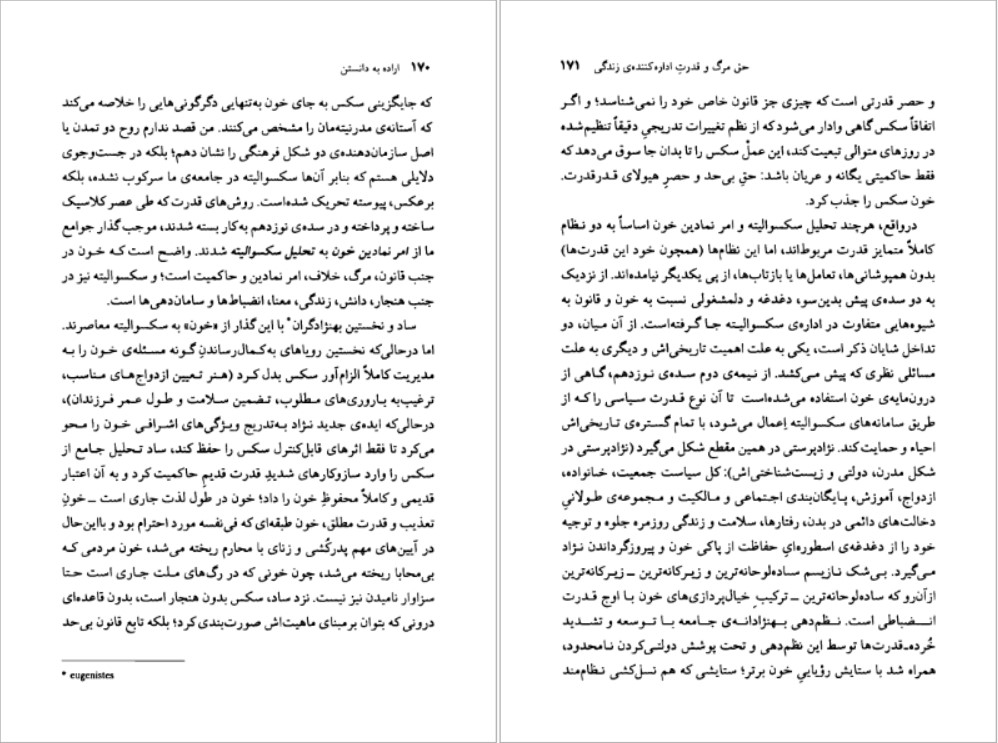 ۱۷۰ اراده به دانستن
که جایگزینی سکس به جای خون به‌تنهایی دگرگونی‌هایی را خلاصه می‌کند
که آستانه‌ی مدرنیته‌مان را مشخص می‌کنند. من قصد ندارم روح دو تمدن یا
اصل سازمان‌دهنده‌ی دو شکل فرهنگی را نشان دهم؛ بلکه در جست‌وجوی
دلایلی هستم که بنابر آن‌ها سکسوالیته در جامعه‌ی ما سرکوب نشده، بلکه
برعکس، پیوسته تحریک شده‌است. روش‌های قدرت که طی عصر کلاسیک
ساخته و پرداخته و در سده‌ی نوزدهم به‌کار بسته شدند، موجب گذار جوامع
ما از امر نمادین خون به تحلیل سکسوالیته شدند. واضح است که خون در
جنب قانون، مرگ، خلاف، امر نمادین و حاکمیت است؛ و سکسوالیته نیز در
جنب هنجار، دانش، زندگی، معنا، انضباط‌ها و سامان‌دهی‌ها است.
ساد و نخستین بهنژادگران* با این گذار از «خون» به سکسوالیته معاصرند.
اما درحالی‌که نخستین رویاهای به‌کمال‌رساندنِ گونه مسئله‌ی خون را به
مدیریت کاملاً الزام‌آور سکس بدل کرد (هنر تعیین ازدواج‌های مناسب،
ترغیب‌به باروری‌های مطلوب، تضمین سلامت و طول عمر فرزندان)،
درحالی‌که ایده‌ی جدید نژاد به‌تدریج ویژگی‌های اشرافی خون را محو
می‌کرد تا فقط اثرهای قابل‌کنترل سکس را حفظ کند، ساد تحلیل جامع از
سکس را وارد سازوکارهای شدیدِ قدرت قدیمِ حاکمیت کرد و به آن اعتبار
قدیمی و کاملاً محفوظِ خون را داد؛ خون در طول لذت جاری است ــ خونِ
تعذیب و قدرت مطلق، خون طبقه‌ای که فی‌نفسه مورد احترام بود و بااین‌حال
در آیین‌های مهم پدرکُشی و زنای با محارم ریخته می‌شد، خون مردمی که
بی‌محابا ریخته می‌شد، چون خونی که در رگ‌های ملت جاری است حتا
سزاوار نامیدن نیز نیست. نزد ساد، سکس بدون هنجار است، بدون قاعده‌ای
درونی که بتوان برمبنای ماهیت‌اش صورت‌بندی کرد؛ بلکه تابع قانون بی‌حد
* eugenistes
حق مرگ و قدرتِ اداره‌کننده‌ی زندگی ۱۷۱
و حصر قدرتی است که چیزی جز قانون خاص خود را نمی‌شناسد؛ و اگر
اتفاقاً سکس گاهی وادار می‌شود که از نظم تغییرات تدریجیِ دقیقاً تنظیم‌شده
در روزهای متوالی تبعیت کند، این عملْ سکس را تا بدان جا سوق می‌دهد که
فقط حاکمیتی یگانه و عریان باشد: حقِ بی‌حد و حصرِ هیولای قدرقدرت.
خون سکس را جذب کرد.
درواقع، هرچند تحلیل سکسوالیته و امر نمادین خون اساساً به دو نظام
کاملاً متمایز قدرت مربوط‌اند، اما این نظام‌ها (همچون خود این قدرت‌ها)
بدون همپوشانی‌ها، تعامل‌ها یا بازتاب‌ها، از پی یکدیگر نیامده‌اند. از نزدیک
به دو سده‌ی پیش بدین‌سو، دغدغه و دلمشغولی نسبت به خون و قانون به
شیوه‌هایی متفاوت در اداره‌ی سکسوالیته جا گرفته‌است. از آن میان، دو
تداخل شایان ذکر است، یکی به علت اهمیت تاریخی‌اش و دیگری به علت
مسائلی نظری که پیش می‌کشد. از نیمه‌ی دوم سده‌ی نوزدهم، گاهی از
درون‌مایه‌ی خون استفاده می‌شده‌است تا آن نوع قدرت سیاسی را که از
طریق سامانه‌های سکسوالیته اِعمال می‌شود، با تمام گستره‌ی تاریخی‌اش
احیاء و حمایت کند. نژادپرستی در همین مقطع شکل می‌گیرد (نژادپرستی در
شکل مدرن، دولتی و زیست‌شناختی‌اش): کل سیاست جمعیت، خانواده،
ازدواج، آموزش، پایگان‌بندی اجتماعی و مالکیت و مجموعه‌ی طولانیِ
دخالت‌های دائمی در بدن، رفتارها، سلامت و زندگی روزمره جلوه و توجیه
خود را از دغدغه‌ی اسطوره‌ایِ حفاظت از پاکی خون و پیروزگرداندن نژاد
می‌گیرد. بی‌شک نازیسم ساده‌لوحانه‌ترین و زیرکانه‌ترین ــ زیرکانه‌ترین
ازآن‌رو که ساده‌لوحانه‌ترین ــ ترکیبِ خیال‌پردازی‌های خون با اوج قدرت
انضباطی است. نظم‌دهی بهنژادانه‌ی جامعه با توسعه و تشدید
خُرده‌ـ‌قدرت‌ها توسط این نظم‌دهی و تحت پوشش دولتی‌کردن نامحدود،
همراه شد با ستایش رؤیاییِ خون برتر؛ ستایشی که هم نسل‌کشی نظام‌مند